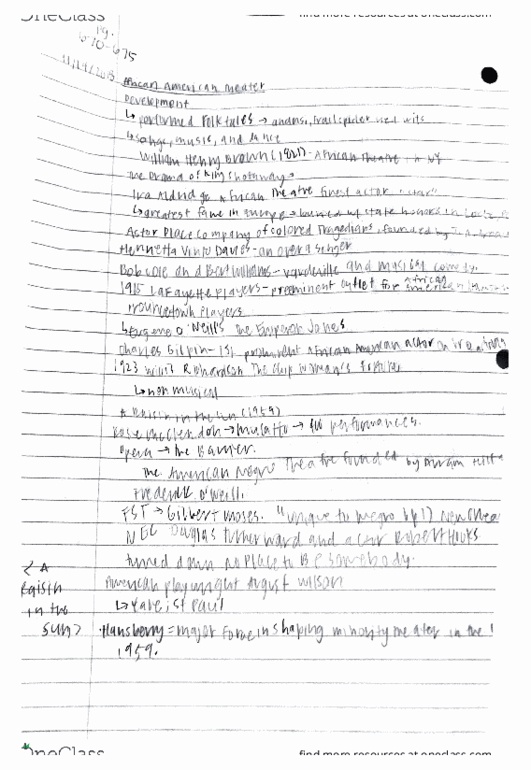 OneClass
find more resources at oneclass.com
19.
6-10-675
11/19/2015
African American theater
Development
↳ performed Folktales →
↳ songs, music, and dance
William Henry Brown (1821) - African Theatre - in NY
The Drama of King Shotaway
Ira Aldridge African Theatre finest actor
↳ greatest fame in europe → buried w/ state honors in
Astor Place Company of colored Tragedians, founded by
Henrietta Vinto Davis - an opera singer
Bob cole and Bert Williams - vaudeville and musical comedy.
1915 Lafayette players - preeminent outlet for african american
Provincetown players
↳ Eugene O'Neill's the Emperor Jones
Charles Gilpin - 1st prominent African American actor on
1923 Willis Richardson The Chip Woman's Fortune
↳ non musical
A Raisin in the sun (1959)
Rose McClendon → Mulatto → performances.
opera → the Barrier.
The American Negro Theatre founded by Abram Hill
Frederick O'Neill.
FST → Gilbert Moses. "unique to negro
NEC Douglas turner ward and actor Robert Hooks
turned down no Place to Be somebody.
American playwright August wilson
↳ Yale, st Paul
<A
Raisin
in the
sun>
Hansberry = major force in shaping minority theater in the
1959.
OneClass
find more resources at oneclass.com